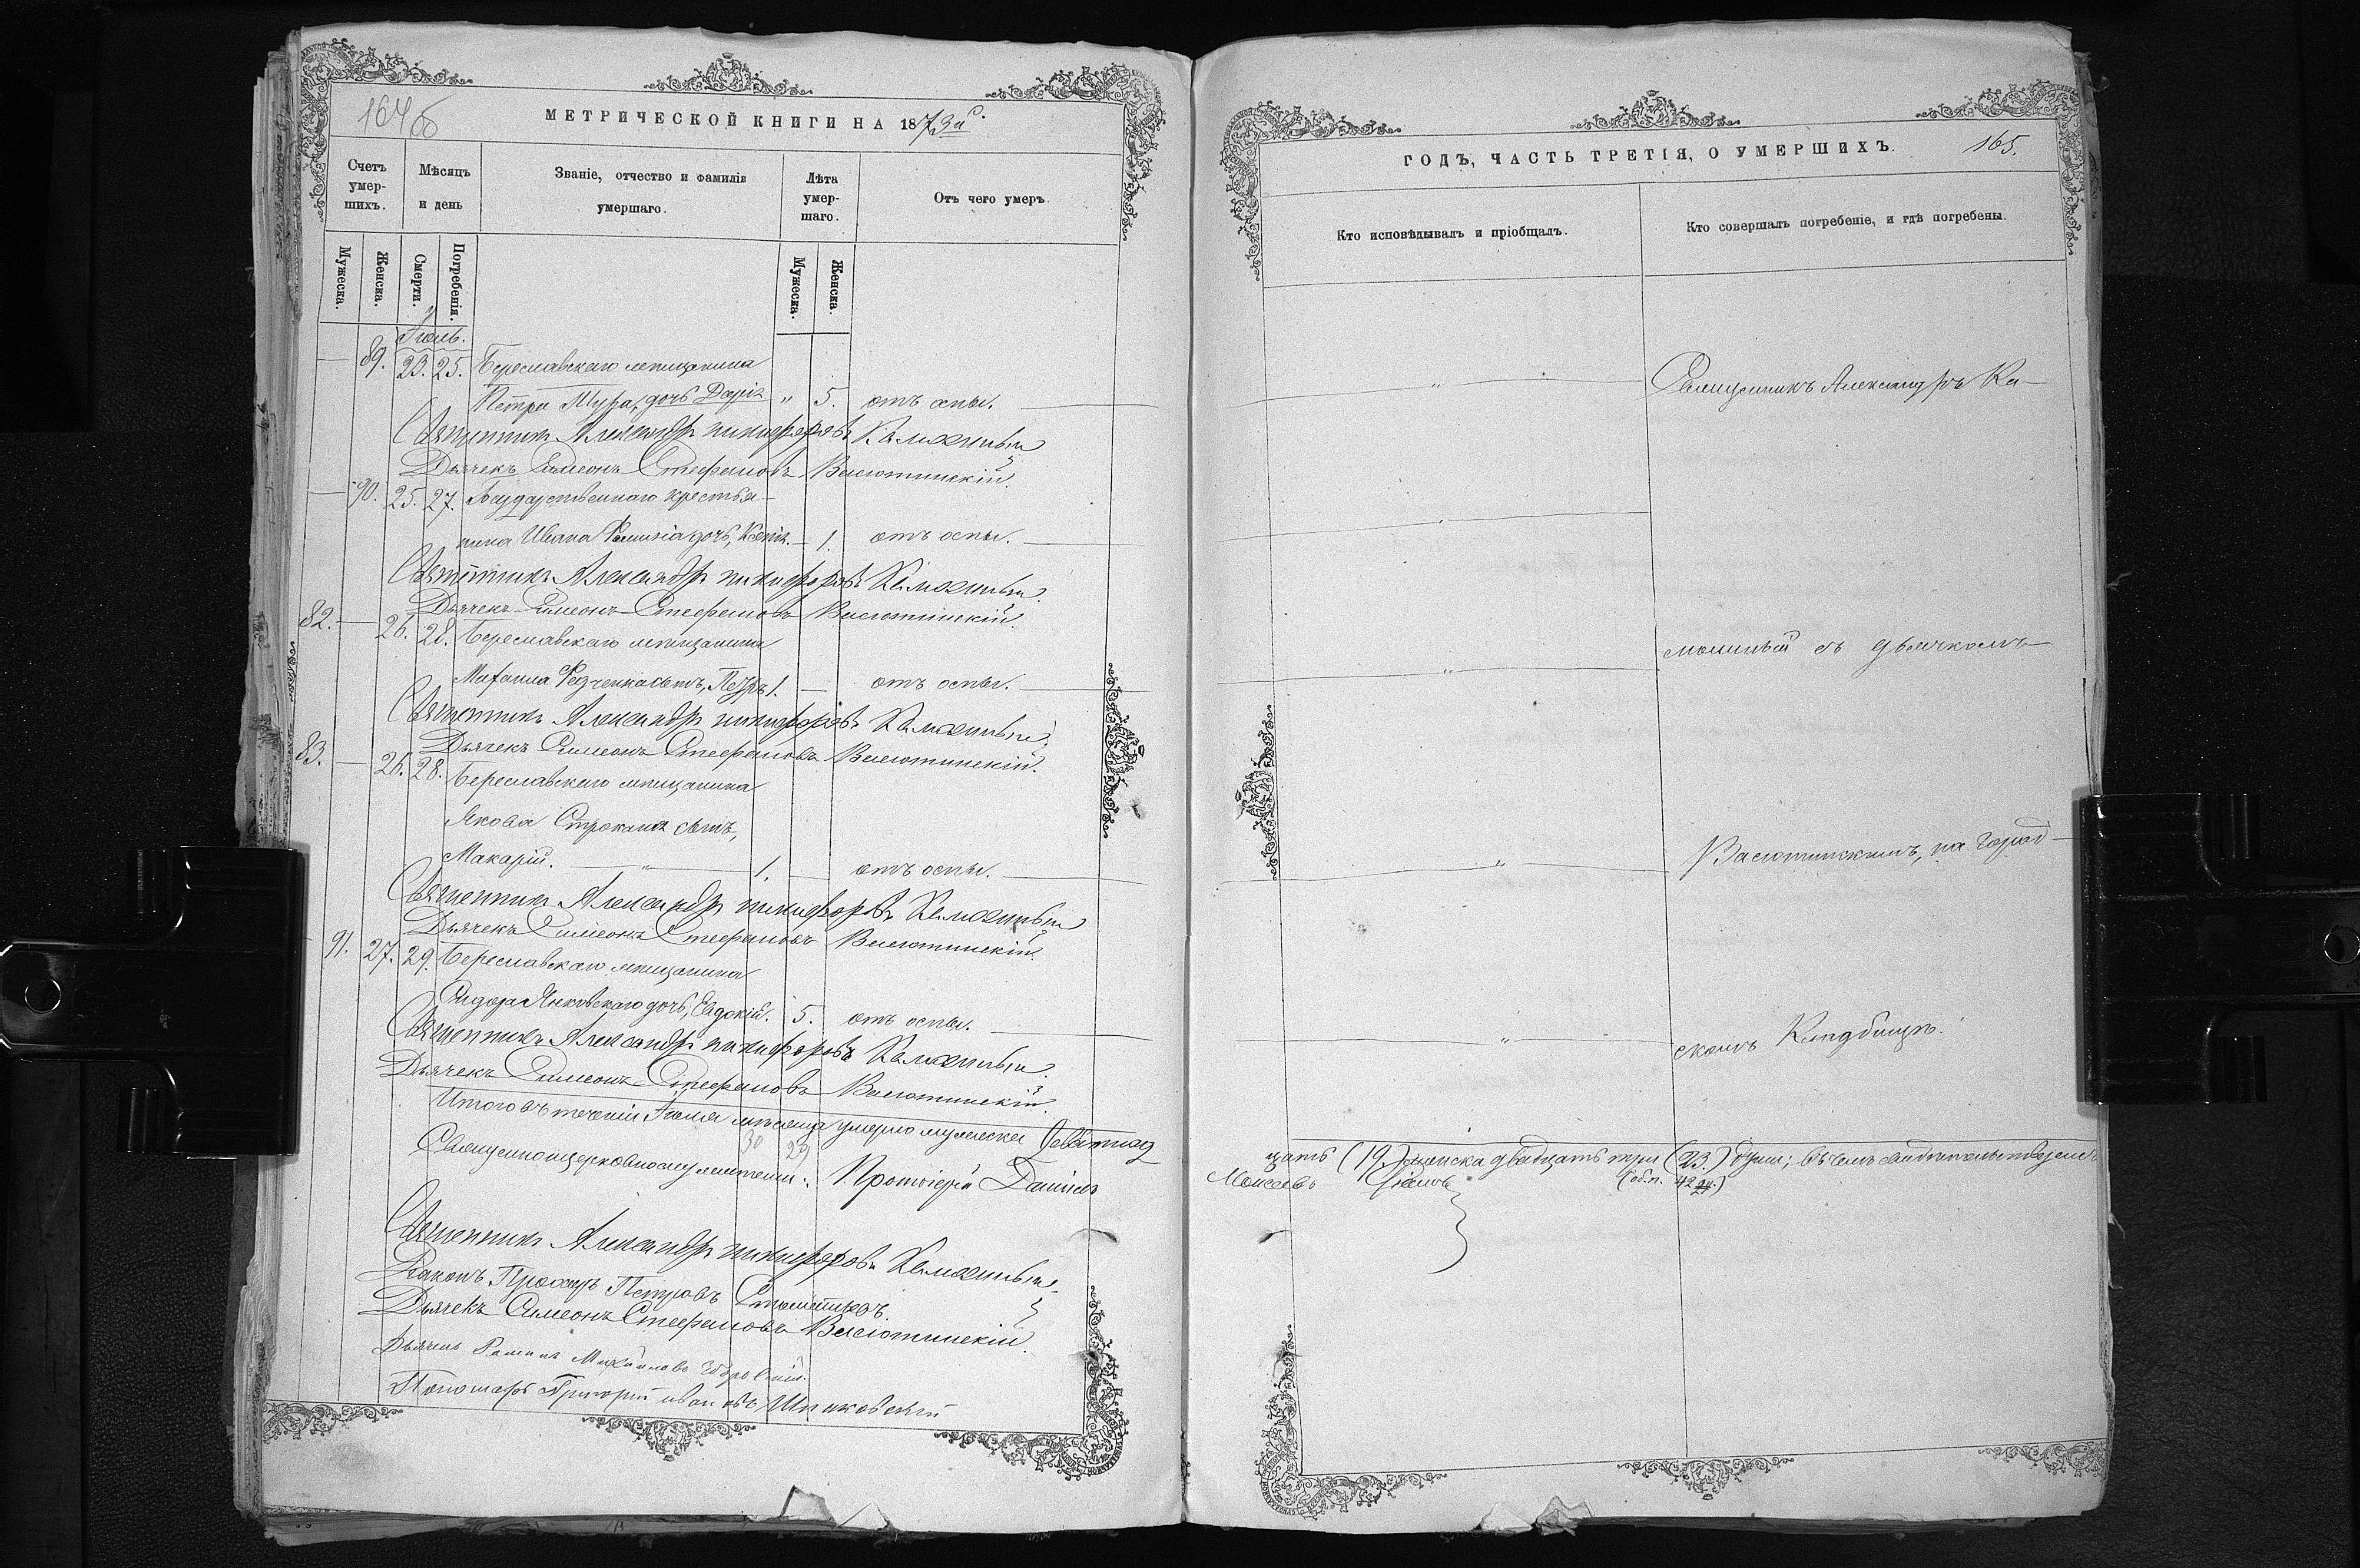 164об
МЕТРИЧЕСКОЙ КНИГИ НА 1873й
Счетъ умер-шихъ.
Мѣсяцъ и день
Званіе, отчество и фамилія умершаго.
Лѣта умер-шаго.
Отъ чего умеръ
Мужеска.
Женска.
Смерти.
Погребенія.
Мужеска.
Женска.
Іюль.
— 89. 23. 25. Береславскаго мѣщанина
Петра Мура, дочь Дарія „ 5. отъ оспы.
Священникъ Александръ Никифоровъ
Дьячекъ Симеонъ Стефановъ Васютинскій.
— 90. 25. 27. Государственнаго крестья-
нина Ивана дочь, Ксенія. — 1. отъ оспы.
Священникъ Александръ Никифоровъ
Дьячекъ Симеонъ Стефановъ Васютинскій.
82. — 26. 28. Береславскаго мѣщанина
сынъ, Петръ 1. — отъ оспы.
Священникъ Александръ Никифоровъ
Дьячекъ Симеонъ Стефановъ Васютинскій.
83. — 26. 28. Береславскаго мѣщанина
Якова Строкана сынъ,
Макарій. „ 1. — отъ оспы.
Священникъ Александръ Никифоровъ
Дьячекъ Симеонъ Стефановъ Васютинскій.
91. 27. 29. Береславскаго мѣщанина
Сидора Янковскаго дочь, Евдокія. 5. отъ оспы.
Священникъ Александръ Никифоровъ
Дьячекъ Симеонъ Стефановъ Васютинскій.
Итого въ теченіи Іюля мѣсяца умерло мужеска девятнад
Священноцерковнослужители: Протоіерей Даніилъ
Священникъ Александръ Никифоровъ
Діаконъ Прохоръ Петровъ
Дьячекъ Симеонъ Стефановъ Васютинскій.
Дьячекъ Романъ Михайловъ
Пономарь Григорій Ивановъ Шпаковскій
ГОДЪ, ЧАСТЬ ТРЕТІЯ, О УМЕРШИХЪ.
165.
Кто исповѣдывалъ и пріобщалъ.
Кто совершалъ погребеніе, и гдѣ погребены.
„ Священникъ Александръ Ка-
„
„ съ дьячкомъ
„ Васютинскимъ, на город-
„ скомъ Кладбищѣ.
цать (19) женска двадцать три (23.) души; въ чемъ свидѣтельствуемъ
Моисеевъ